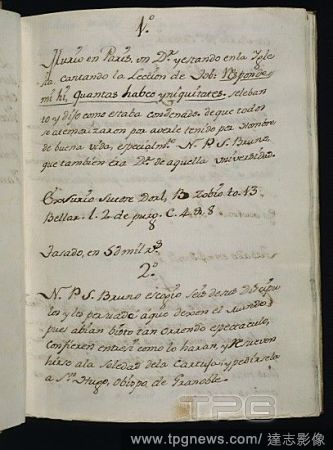 1º
Murio en Paris, un Dr. y estando en la Igle-
sia cantando la Leccion de Job: Responde
mihi, quantas habeo yniquitates. se leban
to y dijo como estaba condenado. de que todos
se atemorizaron por averle tenido por Hombre
de buena vida, especialmte. N. P. S. Bruno
que tambien era Dr. de aquella Universidad.
Surio
to. 13
Bellar. l. 2 de purg. C. 8
Tasado, en 50 mil rs
2º
N. P. S. Bruno escogio seis de sus discipu-
los y los persuade a que dexen el mundo
pues abian visto tan orrendo espectaculo,
confieren entresi como lo haran, y resuelven
hirse a la Soledad de la Cartuja, y pedirsela
a Sn. Hugo, obispo de Granoble.
TPG
www.tpgnews.com/ 達志影像